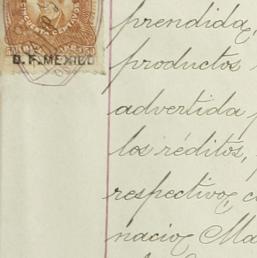 CUENTA CENTAVOS
D. F. MEXICO
prendida,
productos
advertida
los réditos,
respectivos, c
nacio Ma